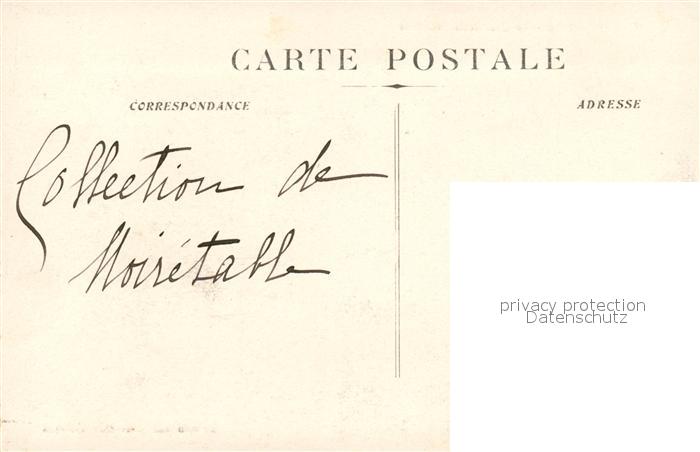 CARTE POSTALE
CORRESPONDANCE
ADRESSE
Collection de
Noirétable
privacy protection
Datenschutz